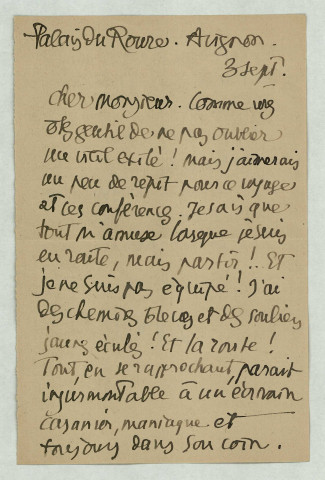 Palais du Roure. Avignon.
3 sept.
Cher Monsieur. Comme vs
êtes gentil de ne pas oublier
un vieil exilé ! mais j'aimerais
un peu de répit pour ce voyage
et ces conférences. Je sais que
tout m'amuse lorsque je suis
en route, mais partir !.. Et
je ne suis pas équipé ! J'ai
des chemises bleues et des souliers
jaunes éculés ! Et la route !
Tout en se rapprochant, parait
insurmontable à un écrivain
casanier, maniaque et
toujours dans son coin.